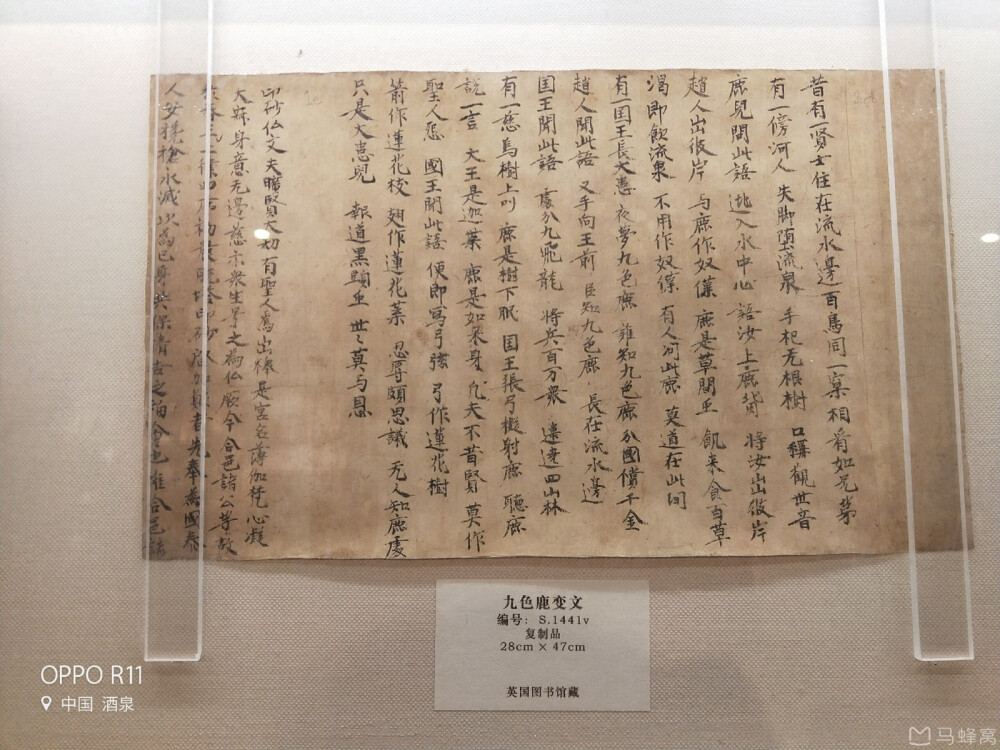 昔有一賢士住在流水邊百鳥同一巢相看如兄弟
有一傍河人 失脚堕流泉 手杷无根樹 口稱觀世音
鹿兒聞此語 逃入水中心 語汝上鹿背 將汝出彼岸
趙人出彼岸 与鹿作奴僕 鹿是草間虫 飢来食百草
渴即飲流泉 不用作奴僕 有人问此鹿 莫道在此间
有一国王長大患 夜夢九色鹿 誰知九色鹿 分國償千金
趙人聞此語 叉手向王前 臣知九色鹿 長在流水邊
国王聞此語 處分九飛龍 將兵百万衆 違遶四山林
有一慈烏樹上叫 鹿是樹下眠 国王張弓擬射鹿 聽鹿
説一言 大王是迦葉 鹿是如来身 凡夫不昔賢 莫作
聖人怨 國王聞此語 便即寫弓弦 弓作蓮花樹
箭作蓮花枝 翅作蓮花葉 忍辱頗思議 无人知鹿處
只是大患兒 報道黑頭虫 世々莫与恩
印砂仏文 夫曠賢大劫有聖人焉出 是宮名薄伽梵心凝
大寂身意无邊慈示衆生 之為仏 今合邑諸公等故
先奉為國泰
人安 水滅次為己身 合邑諸
九色鹿变文
编号: S.1441v
复制品
28cm × 47cm
英国图书馆藏
OPPO R11
中国 酒泉
马蜂窝